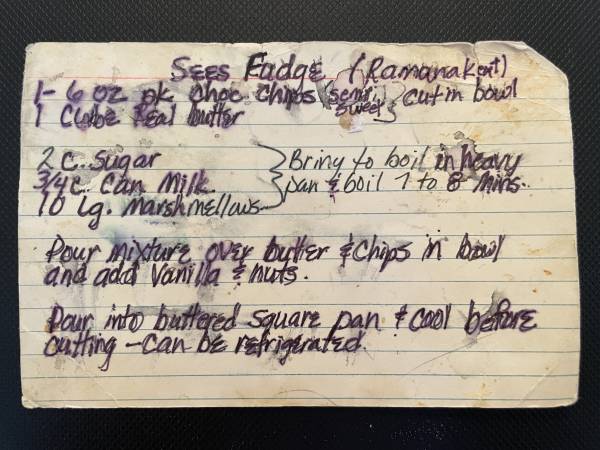 Sees Fudge (Ramona Kent)
1- 6 oz pk choc chips (semi sweet) cut in bowl
1 Cube Real butter
2 c. Sugar
3/4 c. Can Milk.
10 Lg. Marshmellows
Bring to boil in heavy
pan & boil 7 to 8 mins.
Pour mixture over butter & chips in bowl
and add vanilla & nuts.
Pour into buttered square pan & cool before
cutting - can be refrigerated.